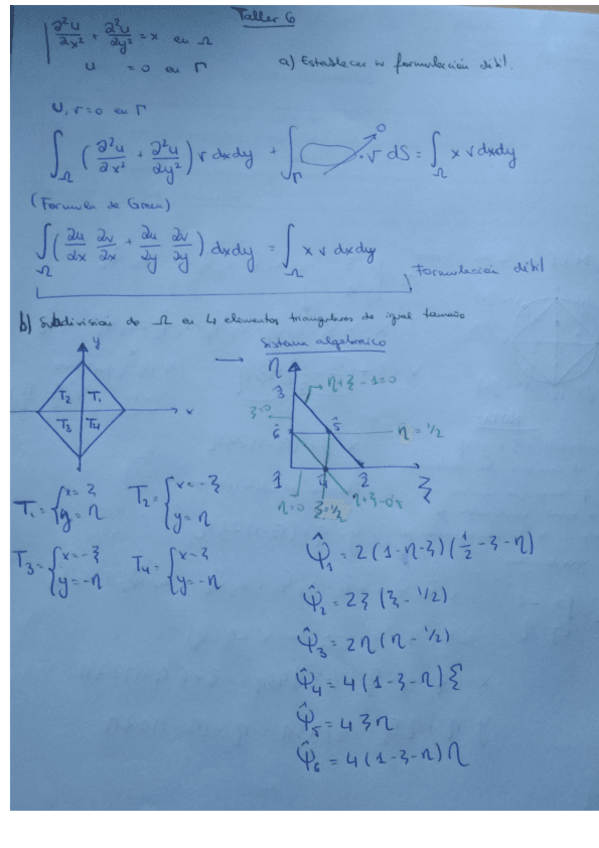 Taller 6
∂²u/∂x² + ∂²u/∂y² = x en Ω
u = 0 en Γ
a) Establecer la formulación débil.
u, v = 0 en Γ
∫_Ω (∂²u/∂x² + ∂²u/∂y²) v dxdy + ∫_Γ 0 · v dS = ∫_Ω x v dxdy
(Formula de Green)
∫_Ω (∂u/∂x ∂v/∂x + ∂u/∂y ∂v/∂y) dxdy = ∫_Ω x v dxdy
Formulación débil
b) Subdivisión de Ω en 4 elementos triangulares de igual tamaño
→ Sistema algebraico
y
x
T₂ T₁
T₃ T₄
η
3̂
η+ξ-1=0
ξ=0
6̂ 5̂
η = 1/2
1̂ 4̂ 2̂
ξ
η=0 ξ=1/2 η+ξ-0'5
T₁ = { x = ξ
y = η
T₂ = { x = -ξ
y = η
T₃ = { x = -ξ
y = -η
T₄ = { x = ξ
y = -η
ψ̂₁ = 2(1-η-ξ)(1/2-ξ-η)
ψ̂₂ = 2ξ(ξ-1/2)
ψ̂₃ = 2η(η-1/2)
ψ̂₄ = 4(1-ξ-η)ξ
ψ̂₅ = 4ξη
ψ̂₆ = 4(1-ξ-η)η